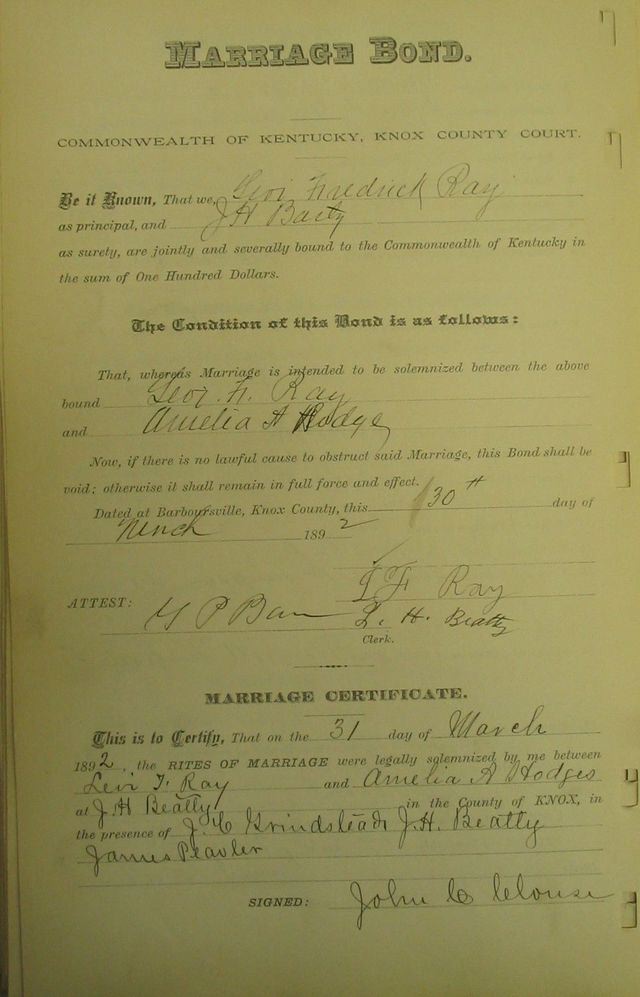 MARRIAGE BOND.
COMMONWEALTH OF KENTUCKY, KNOX COUNTY COURT.
Be it Known, That we, Levi Fredrick Ray
as principal, and J H Baity
as surety, are jointly and severally bound to the Commonwealth of Kentucky in
the sum of One Hundred Dollars.
The Condition of this Bond is as follows:
That, whereas Marriage is intended to be solemnized between the above
bound Levi F. Ray
and Amelia A Hodge
Now, if there is no lawful cause to obstruct said Marriage, this Bond shall be
void; otherwise it shall remain in full force and effect.
Dated at Barboursville, Knox County, this 30th day of
March 1892
L F Ray
ATTEST: G P Bain J. H. Beatty
Clerk.
MARRIAGE CERTIFICATE.
This is to Certify, That on the 31 day of March
1892, the RITES OF MARRIAGE were legally solemnized by me between
Levi F. Ray and Amelia A Hodges
at J. H Beatty in the County of KNOX, in
the presence of J. C Grindstead J. H. Beatty
James Peavler
SIGNED: John C Clouse